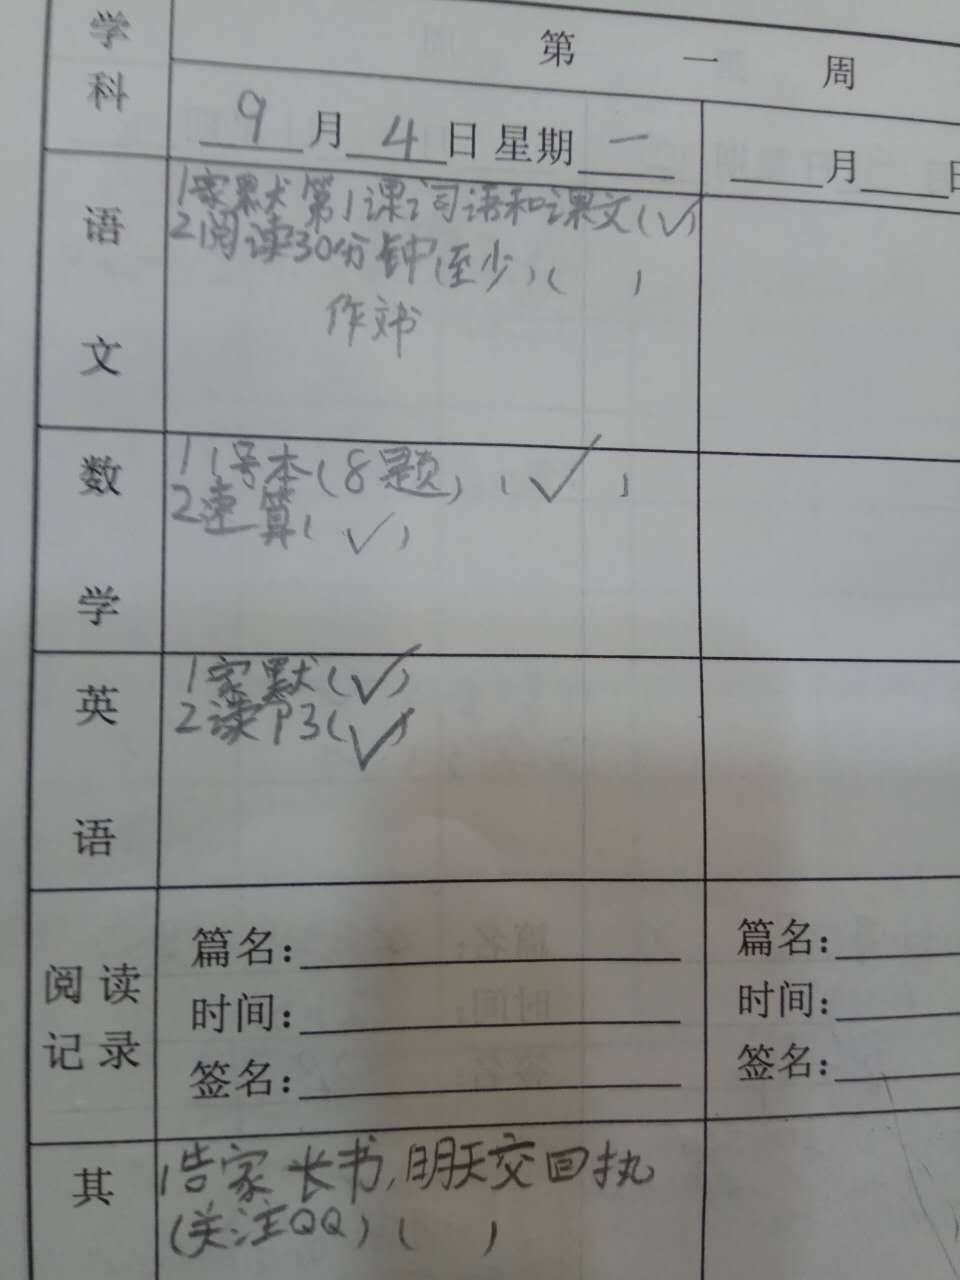 学科
第一周
9月4日星期一
月 日
语文
1家默第1课词语和课文(√)
2阅读30分钟(至少)( )
作文书
数学
1 1号本(8题)(√)
2速算(√)
英语
1家默(√)
2读P3(√)
阅读记录
篇名:
时间:
签名:
篇名:
时间:
签名:
其
1告家长书,明天交回执
(关注QQ)( )